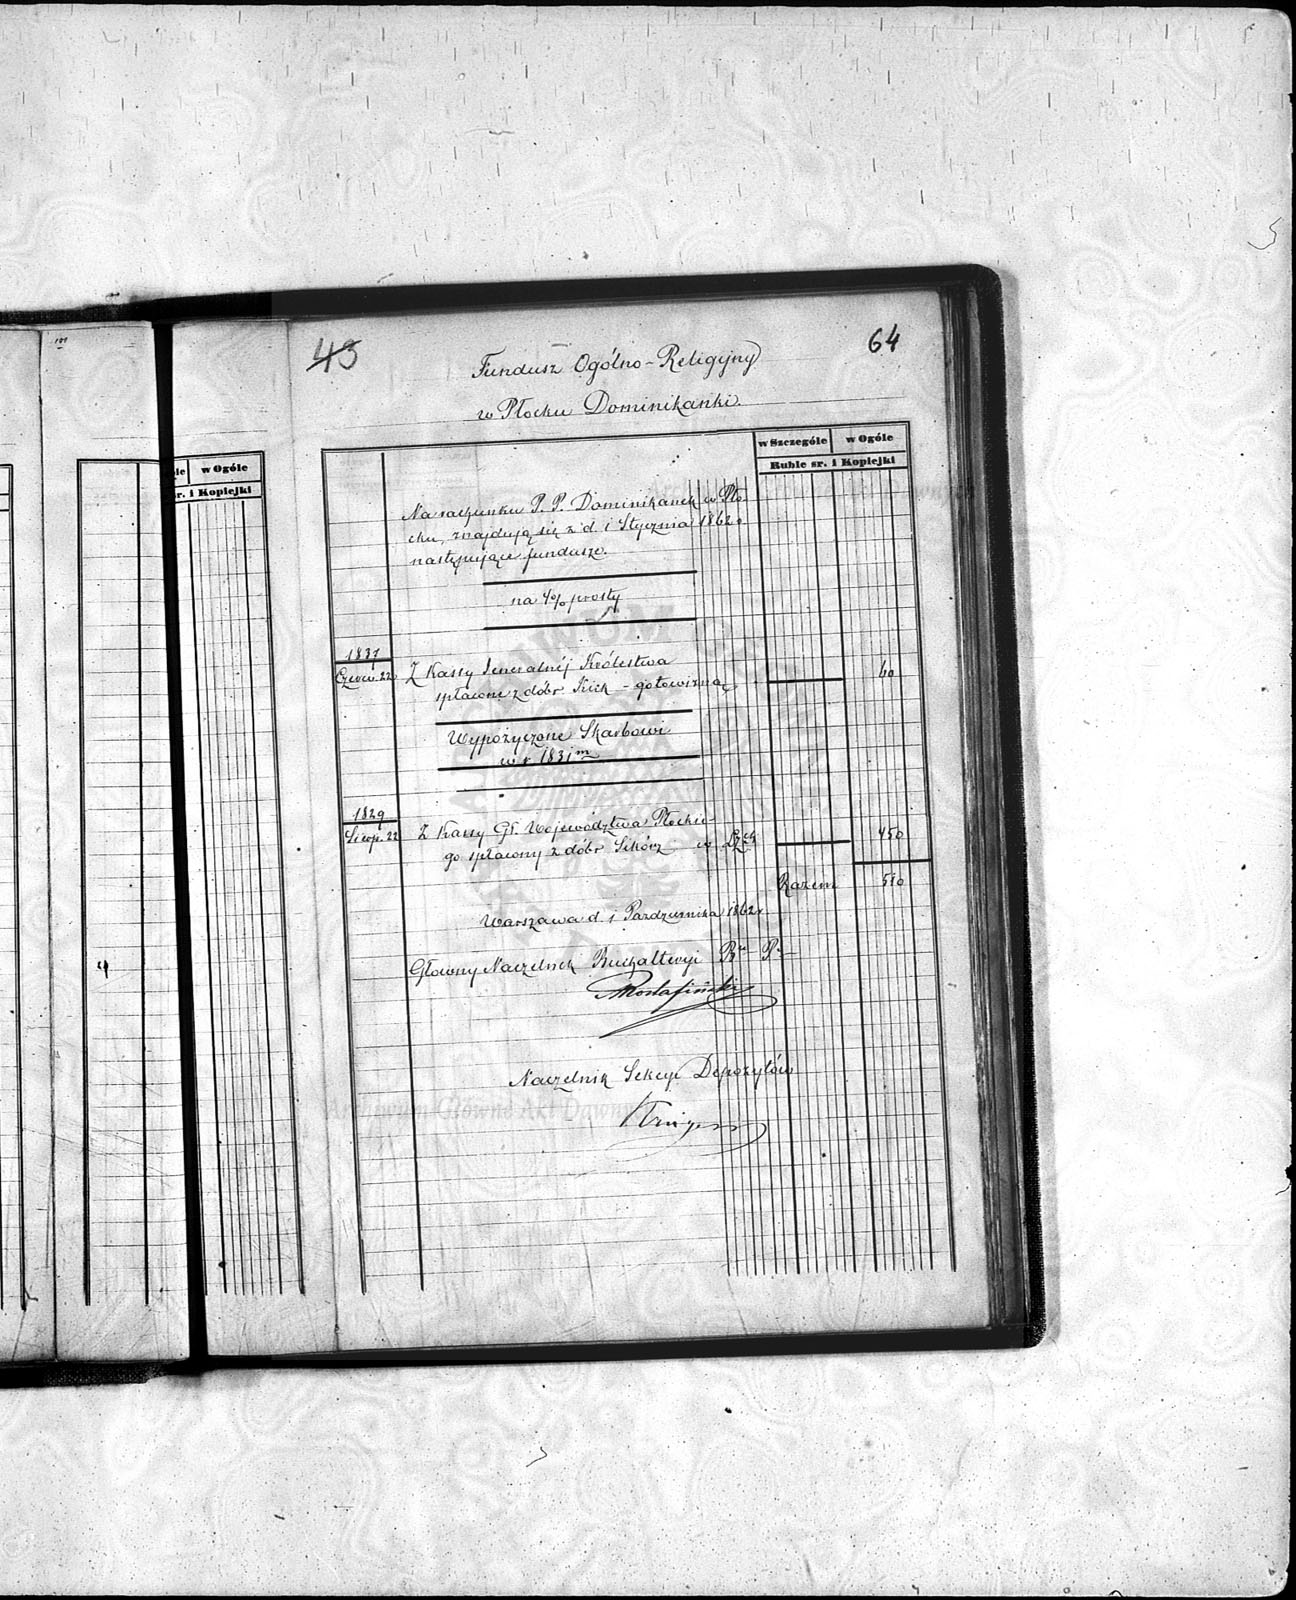 43
64
Fundusz Ogólno-Religijny
w Płocku Dominikanki.
w Szczególe w Ogóle
Ruble sr. i Kopiejki
w Ogóle
sr. i Kopiejki
Na rachunku P. P. Dominikanek w Pło-
cku, znajdują się z d. 1 Stycznia 1862 r.
następujące fundusze.
na 4% prosty
1837
Czerw. 22 Z Kassy Jeneralnéj Królestwa
spłacone z dóbr Kick - gotowizną 60
Wypożyczone Skarbowi
w r. 1831 m
1829
Sierp. 22 Z Kassy Gł. Województwa Płockie-
go spłacony z dóbr Sikórz w 450
Razem 510
Warszawa d. 1 Października 1862 r.
Główny Naczelnik Buchalteryi
Naczelnik Sekcyi Depozytów
Archiwum Główne Akt Dawnych